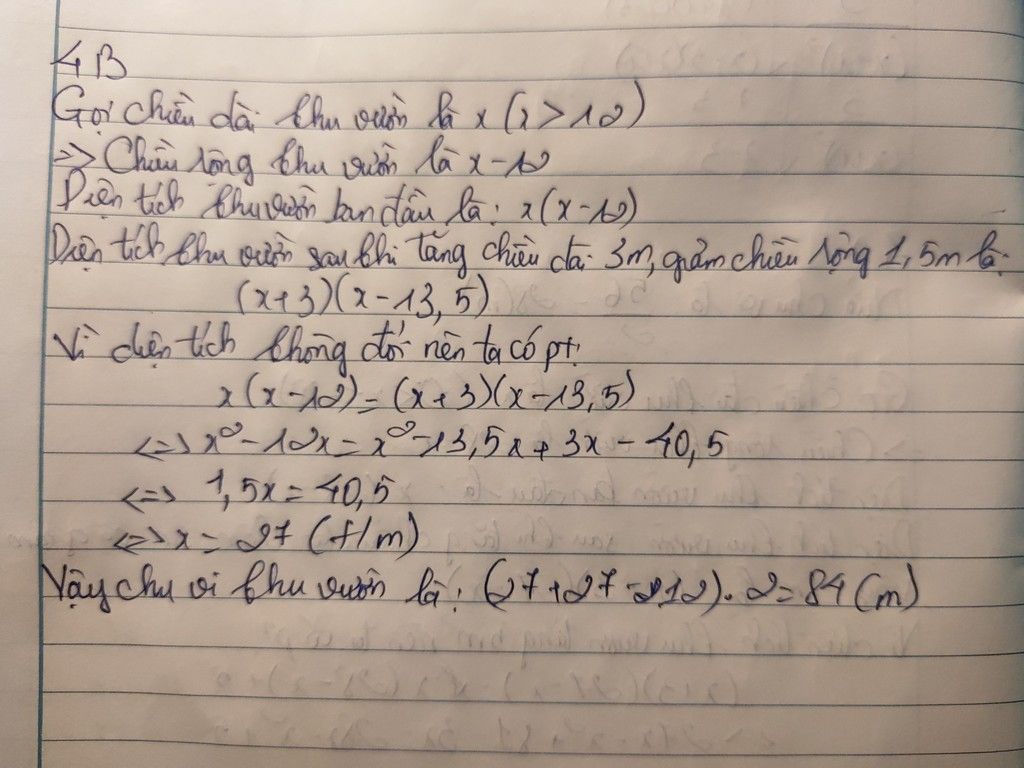 4B
Gọi chiều dài khu vườn là x (x > 12)
=> Chiều rộng khu vườn là x - 12
Diện tích khu vườn ban đầu là: x(x-12)
Diện tích khu vườn sau khi tăng chiều dài 3m, giảm chiều rộng 1,5m là:
(x+3)(x-13,5)
Vì diện tích không đổi nên ta có pt:
x(x-12) = (x+3)(x-13,5)
<=> x² - 12x = x² - 13,5x + 3x - 40,5
<=> 1,5x = 40,5
<=> x = 27 (t/m)
Vậy chu vi khu vườn là: (27+27-12).2 = 84 (m)